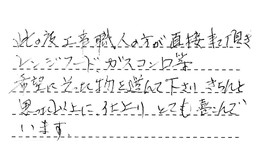 此の度工事職人の方が直接来て頂き
レンジフード、ガスコンロ等
希望に沿った物を選んで下さり きちんと
思った以上に とても喜んで
います。